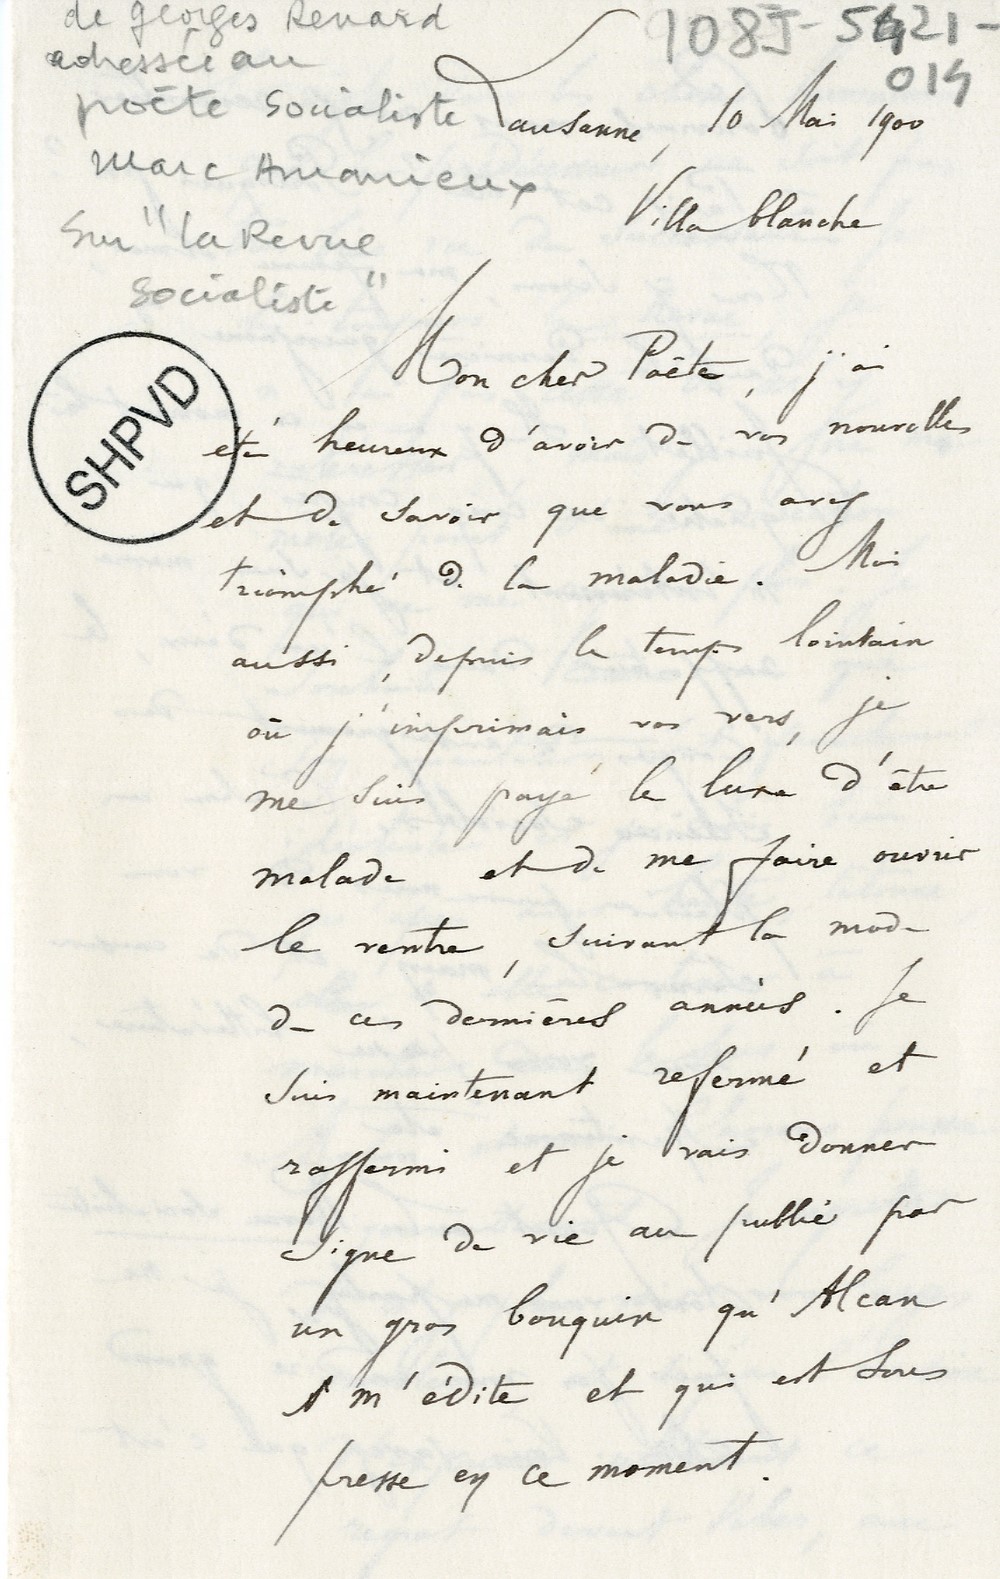 de georges Renard
adressée au
poète Socialiste
Marc Amanieux
Sur "la Revue
Socialiste"
108J-5421-
014
Lausanne, 10 Mai 1900
Villa blanche
SHPVD
Mon cher Poète, j'ai
été heureux d'avoir de vos nouvelles
et de savoir que vous avez
triomphé de la maladie. Moi
aussi, depuis le temps lointain
où j'imprimais vos vers, je
me suis payé le luxe d'être
malade et de me faire ouvrir
le ventre, suivant la mode
de ces dernières années. Je
suis maintenant refermé et
raffermi et je vais donner
signe de vie au public par
un gros bouquin qu'Alcan
m'édite et qui est sous
presse en ce moment.